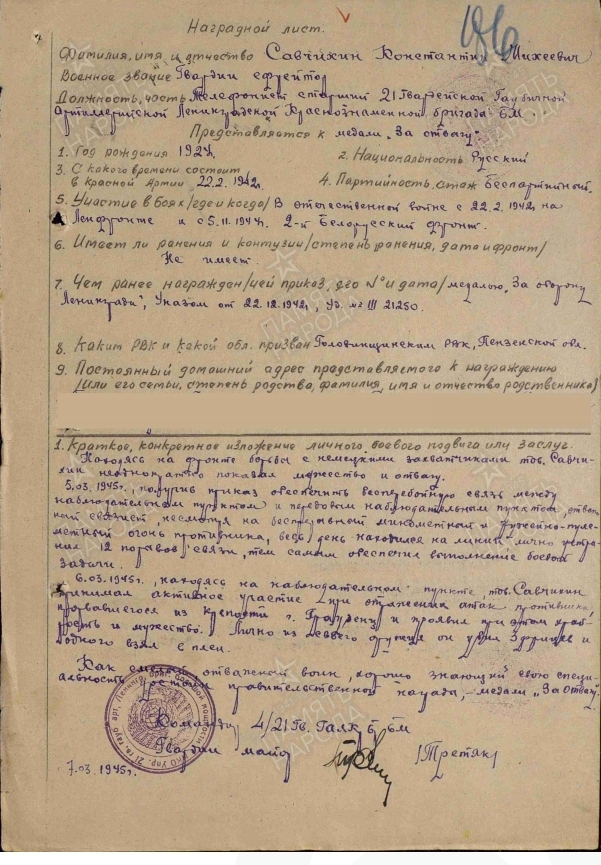 Наградной лист.
Фамилия, имя и отчество Савчихин Константин Михеевич
Военное звание Гвардии ефрейтор
Должность, часть Телефонист старший 21 Гвардейской Гаубичной
Артиллерийской Ленинградской Краснознаменной бригады БМ.
Представляется к медали „За отвагу"
1. Год рождения 1924г.
2. Национальность Русский
3. С какого времени состоит
в Красной Армии 22.2.1942г.
4. Партийность, стаж Беспартийный.
5. Участие в боях /где и когда/ В отечественной войне с 22.2.1942г. на
Ленфронте и с 5.11.1944г. 2-й Белорусский фронт.
6. Имеет ли ранения и контузии /степень ранения, дата и фронт/
Не имеет.
7. Чем ранее награжден /чей приказ, его № и дата/ медалью „За оборону
Ленинграда", Указом от 22.12.1942г, Уд. № III 21250.
8. Каким РВК и какой обл. призван Головинщинским РВК, Пензенской обл.
9. Постоянный домашний адрес представляемого к награждению
/или его семьи, степень родства, фамилия, имя и отчество родственника/
1. Краткое, конкретное изложение личного боевого подвига или заслуг.
Находясь на фронте борьбы с немецкими захватчиками тов. Савчи-
хин неоднократно показал мужество и отвагу.
5.03.1945г., получив приказ обеспечить бесперебойную связь между
наблюдательным пунктом и передовым наблюдательным пунктом, отваж-
ный связист, несмотря на беспрерывный минометный и ружейно-пуле-
метный огонь противника, весь день находился на линии, лично устра-
нил 12 порывов связи, тем самым обеспечил выполнение боевой
задачи.
6.03.1945г., находясь на наблюдательном пункте, тов. Савчихин
принимал активное участие при отражении атак противника,
прорвавшегося из крепости г. Грауденц и проявил при этом храб-
рость и мужество. Лично из своего оружия он убил 3 фрицев и
одного взял в плен.
Как смелый отважный воин, хорошо знающий свою специ-
альность, достоин правительственной награды, – медали „За Отвагу".
Командир 4/21 Гв. ГАЛКБ БМ
Гвардии майор /Третяк/
7.03.1945г.
ПАМЯТЬ
НАРОДА